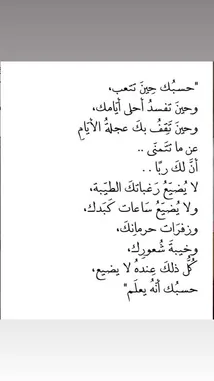 "حسبُك حِينَ تتعب،
وحينَ تفسدُ أحلى أيّامك،
وحينَ تَقِفُ بكَ عجلةُ الأيّامِ
عن ما تتَمنّى ..
أنَّ لكَ ربًّا . .
لا يُضيّعُ رَغباتكَ الطيّبة،
ولا يُضيّعُ سَاعات كَبَدك،
وزفرَات حرمانِكَ،
وخيبةَ شُعورِك،
كُلُّ ذلكَ عِندهُ لا يضيع،
حسبُك أنَّهُ يعلَم"